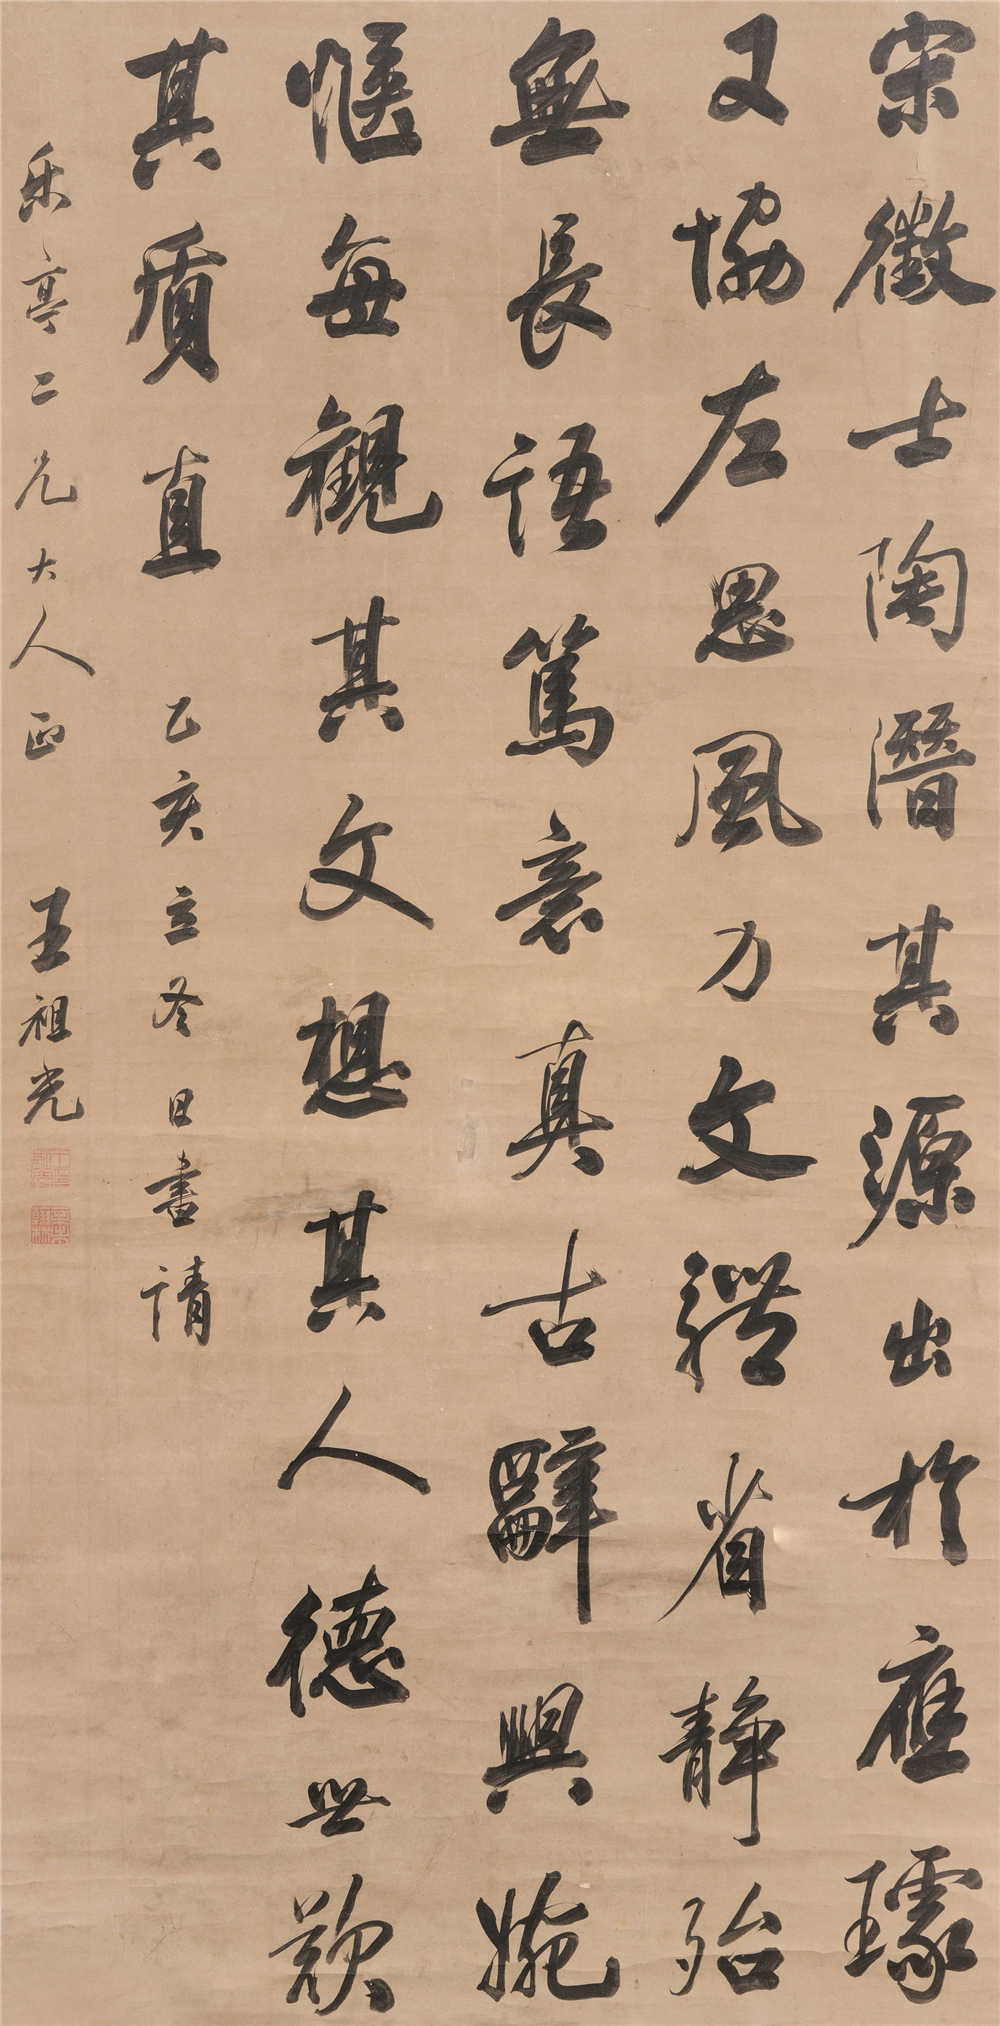 宋徵士陶潛其源出於應璩
又協左思風力文體省静殆
無長語篤意真古辭興婉
愜每觀其文想其人德世歎
其質直
乙亥立冬日書請
乐亭二兄大人正
王祖光